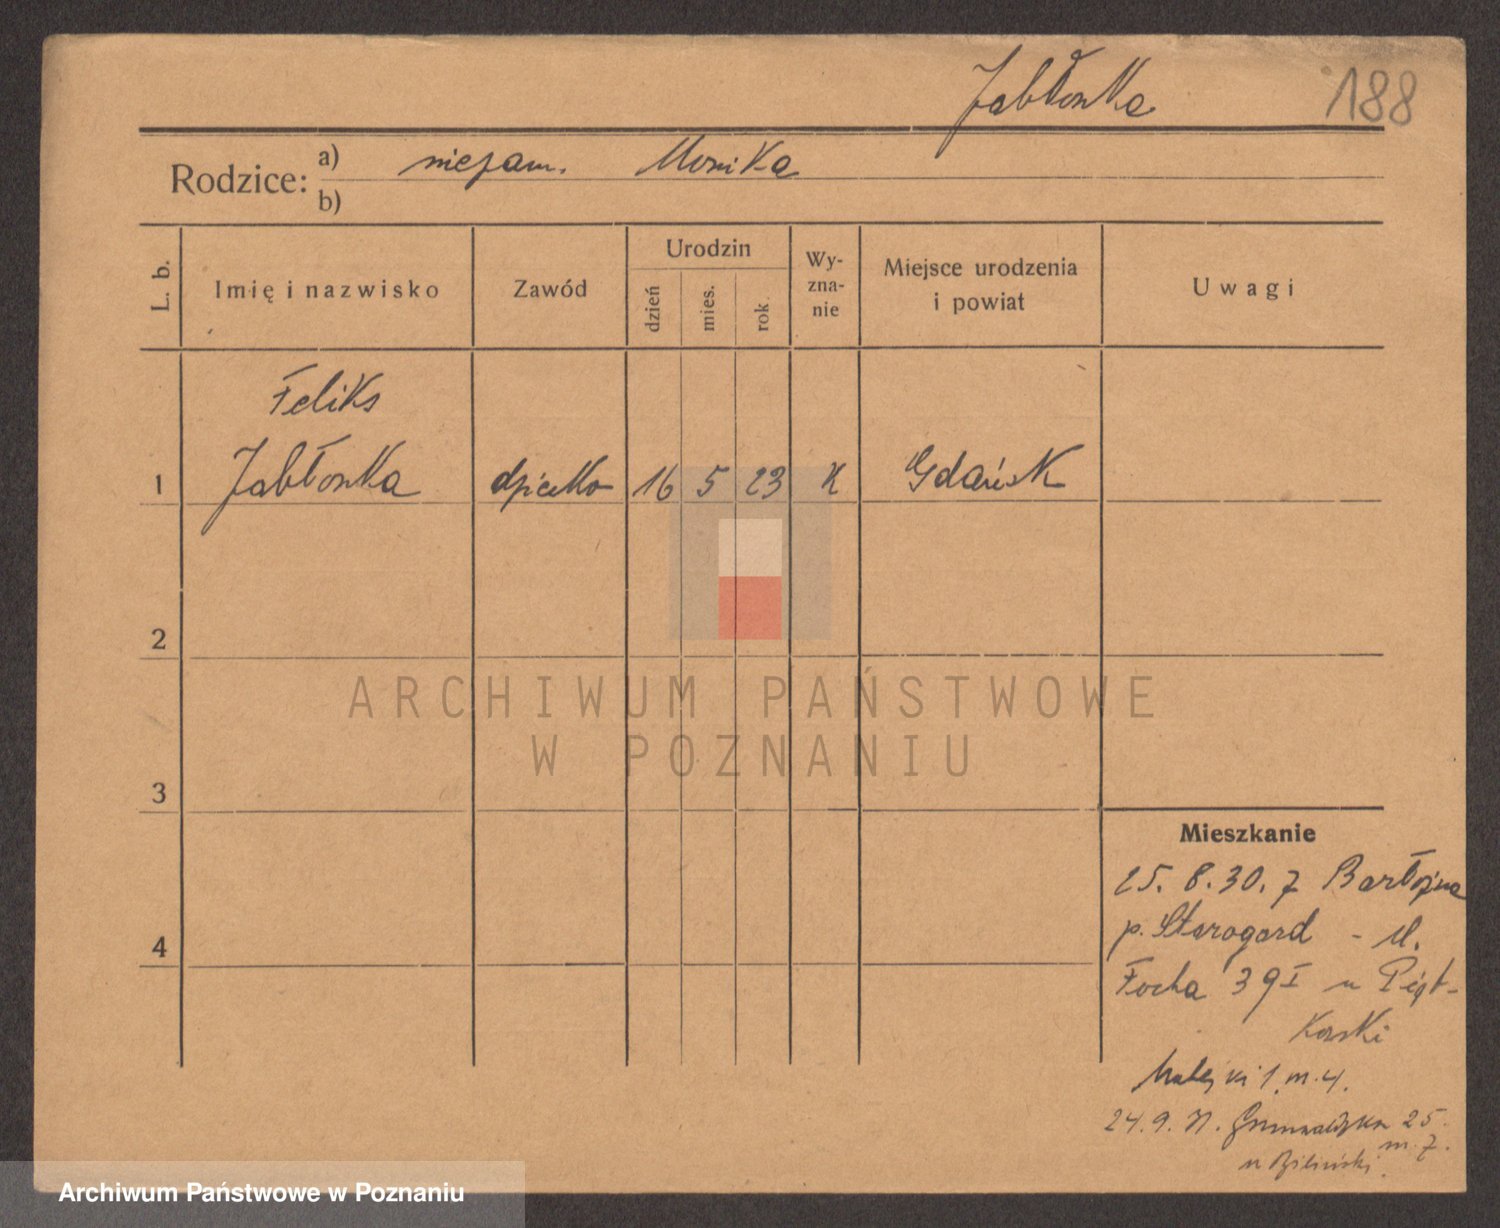 Jabłonka 188
Rodzice: a) niezam. Monika
b)
L. b. Imię i nazwisko Zawód Urodzin dzień mies. rok Wyznanie Miejsce urodzenia i powiat Uwagi
Feliks
1 Jabłonka dziecko 16 5 23 K Gdańsk
2
3
4
ARCHIWUM PAŃSTWOWE
W POZNANIU
Mieszkanie
25. 8. 30. z
p. Starogard - M.
Focha 39 I u Piąt-
kowski
1 m. 4.
24. 9. Grunwaldzka 25
m. 7.
u Biliński
Archiwum Państwowe w Poznaniu